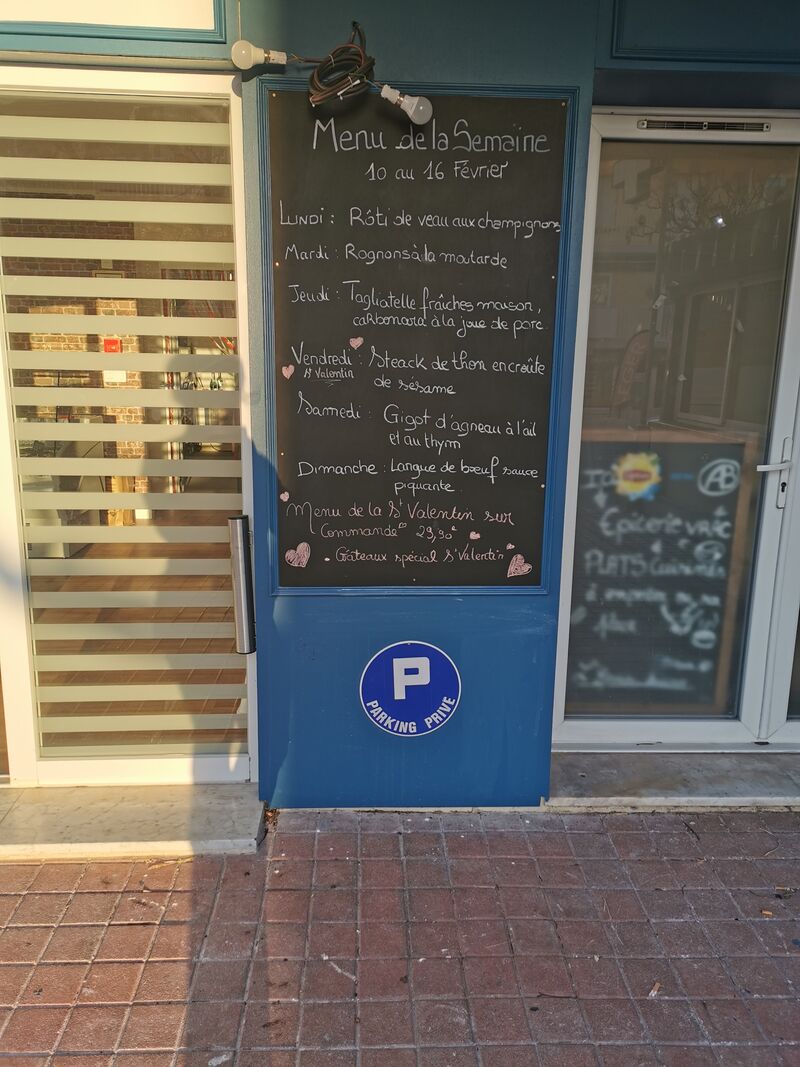 Menu de la Semaine
10 au 16 Février
Lundi : Rôti de veau aux champignons
Mardi : Rognons à la moutarde
Jeudi : Tagliatelle fraîches maison,
carbonara à la joue de porc
Vendredi : Steack de thon en croûte
St Valentin
de sésame
Samedi : Gigot d'agneau à l'ail
et au thym
Dimanche : Langue de bœuf sauce
piquante
Menu de la St Valentin sur
Commande 29,90€
• Gâteaux spécial St Valentin
P
PARKING PRIVE
AB
Epicerie VRAC
PLATS Cuisinés
à emporter ou sur
place